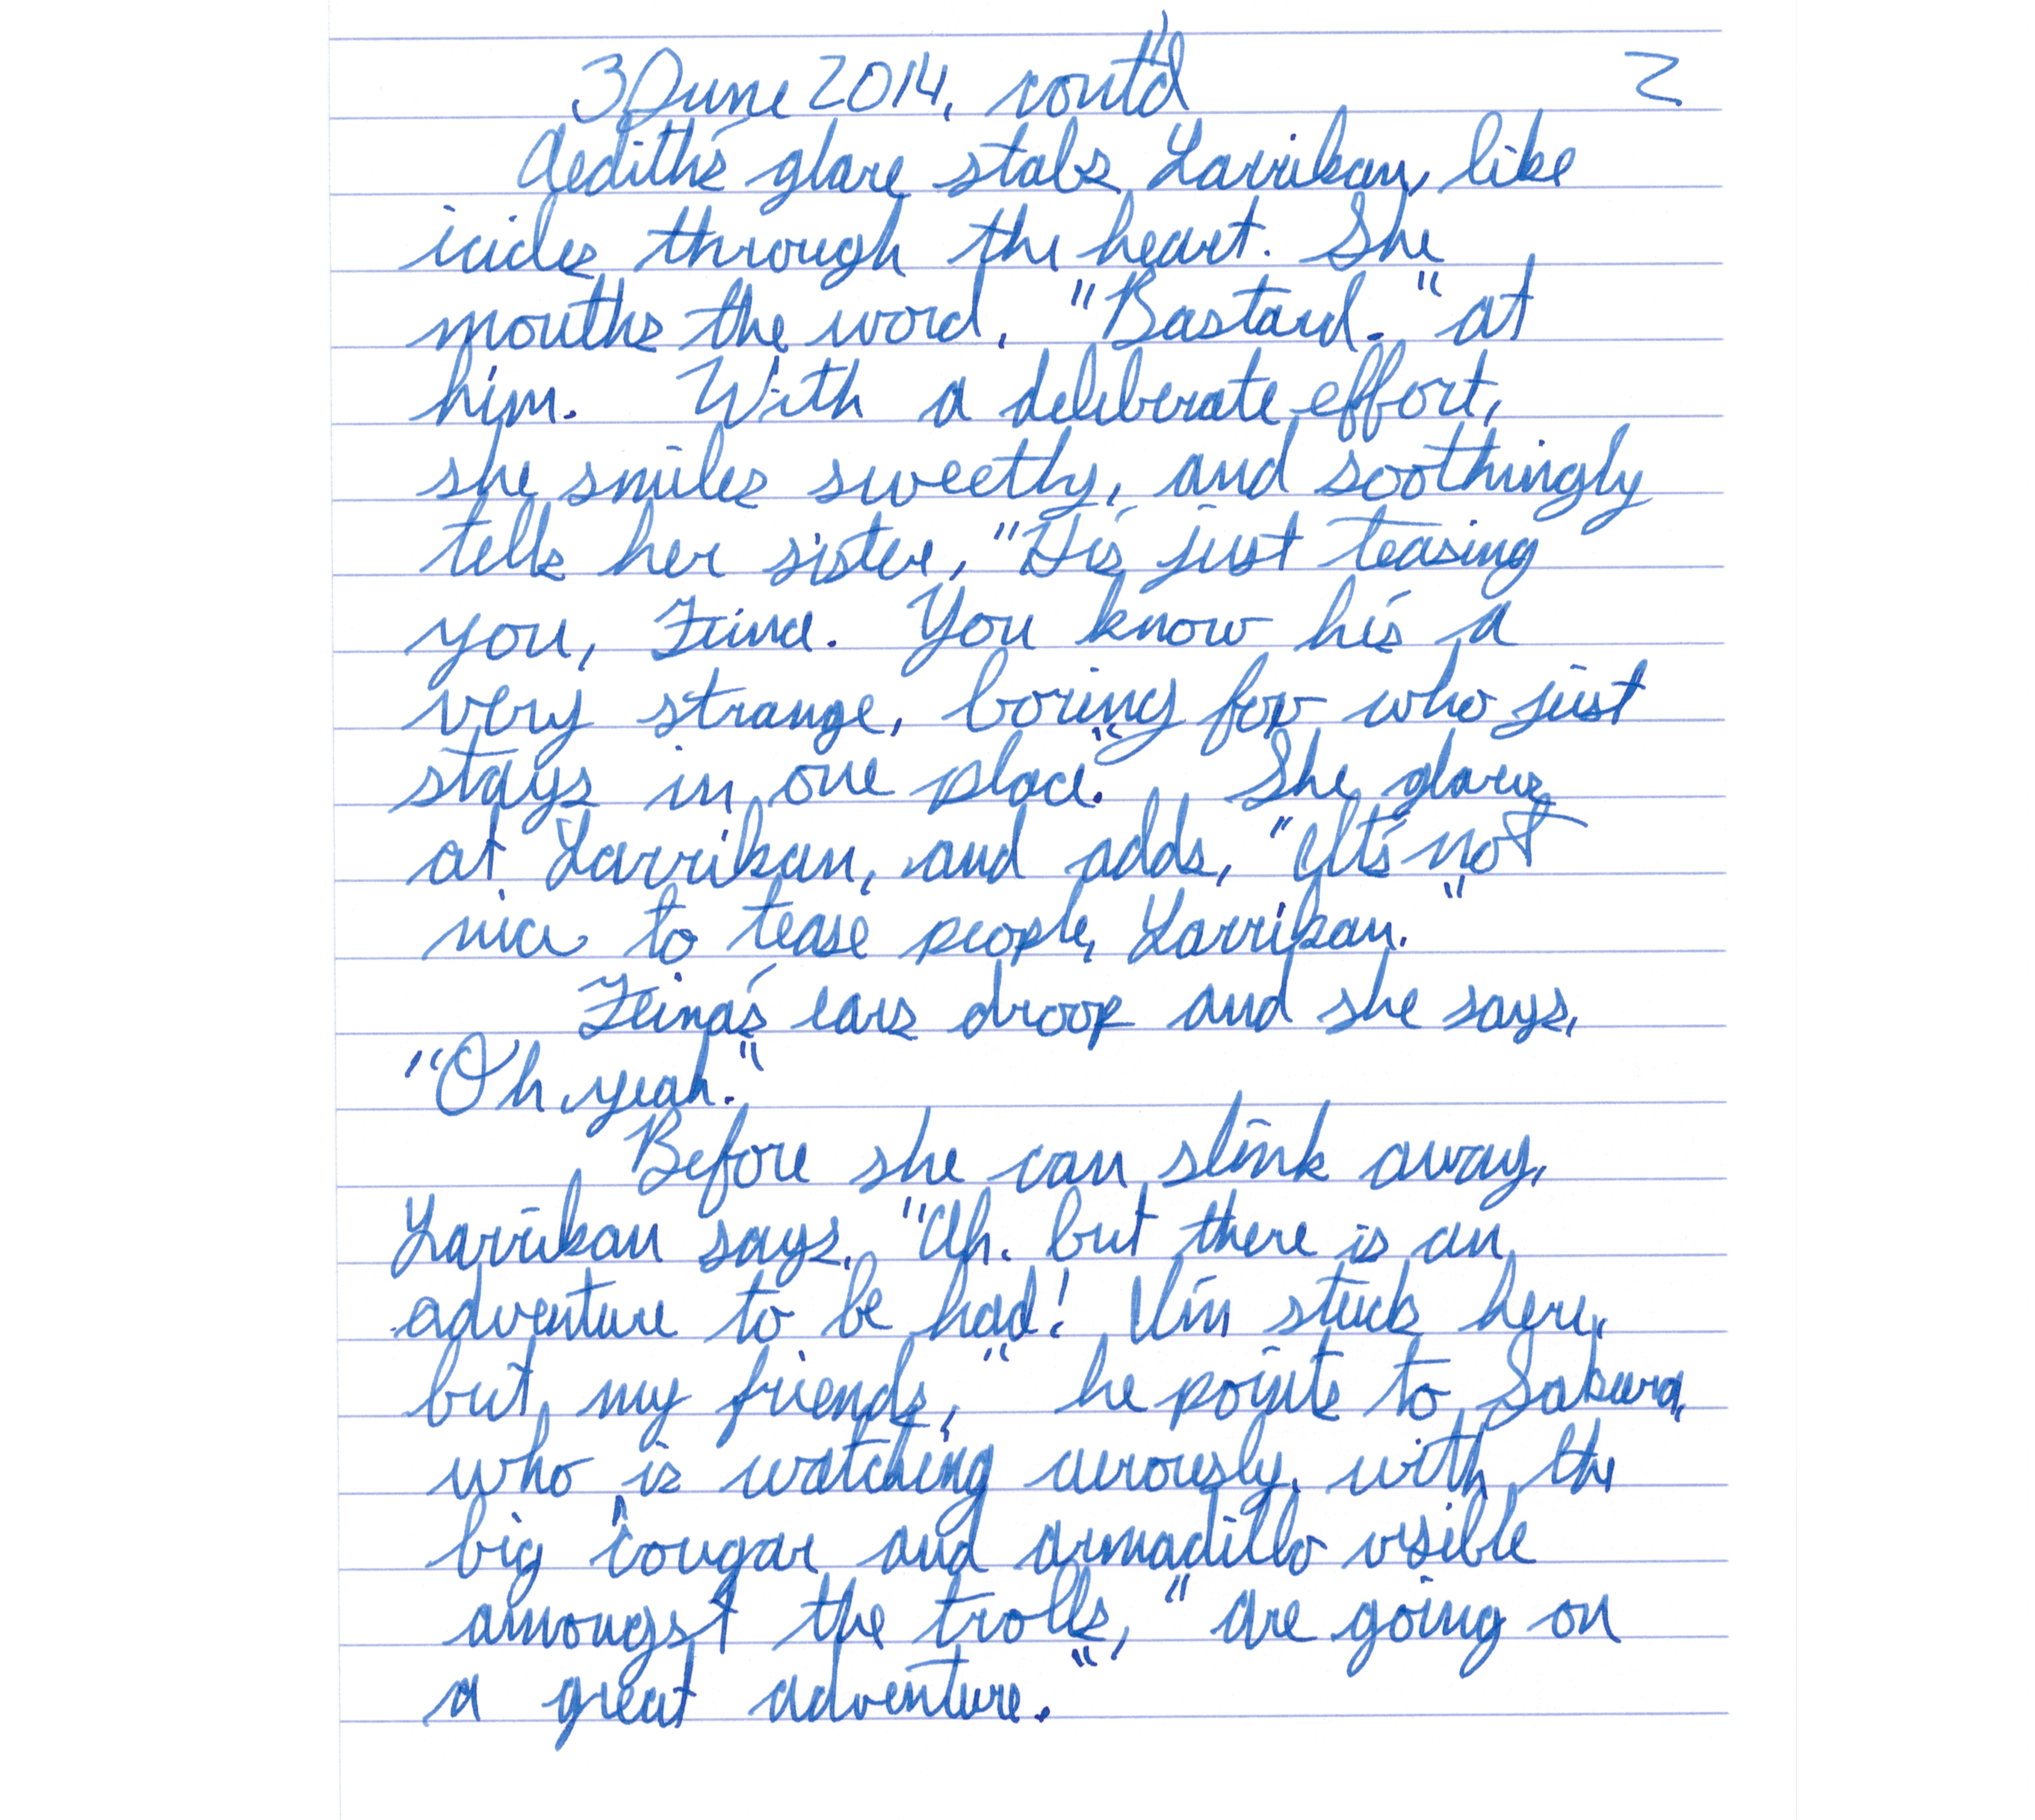 3 June 2014, cont'd 2
Aedith's glare stabs Larrikan, like
icicles through the heart. She
mouths the word, "Bastard." at
him. With a deliberate effort,
she smiles sweetly, and soothingly
tells her sister, "He's just teasing
you, Zeina. You know he's a
very strange, boring fox who just
stays in one place." She glares
at Larrikan, and adds, "It's not
nice to tease people, Larrikan."
Zeina's ears droop and she says,
"Oh yeah."
Before she can slink away,
Larrikan says, "Ah, but there is an
adventure to be had! I'm stuck here,
but my friends," he points to Sakura,
who is watching curiously, with the
big cougar and armadillo visible
amongst the trolls, "are going on
a great adventure."